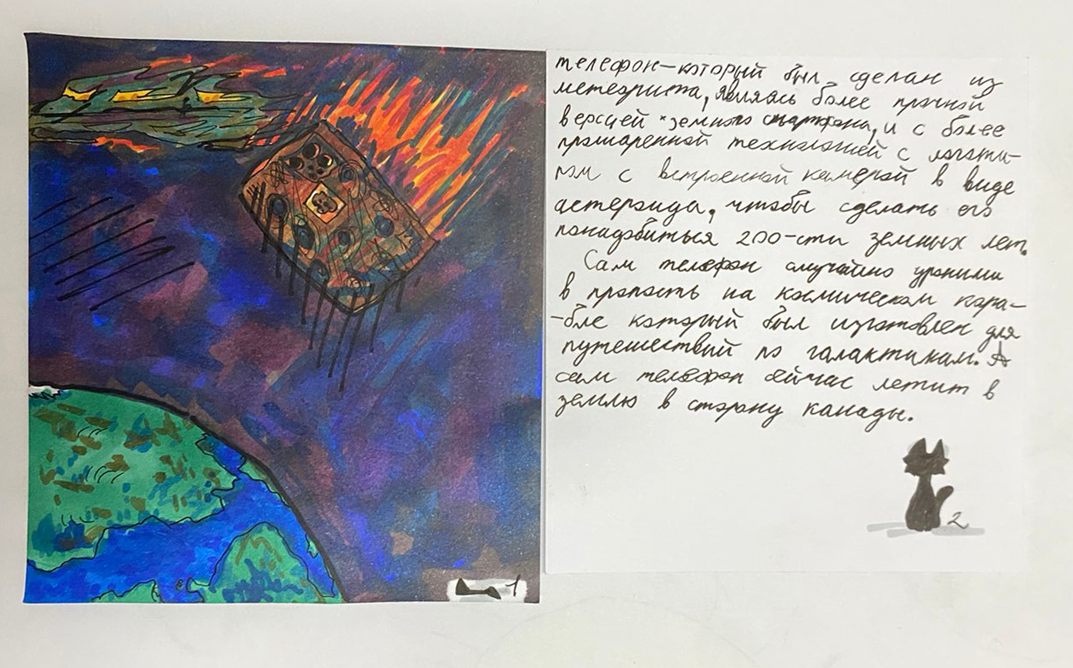 телефон-который был сделан из
метеорита, являясь более прочной
версией земного смартфона, и с более
прошаренной технологией с логоти-
пом с встроенной камерой в виде
астероида, чтобы сделать его
понадобиться 200-сти земных лет.
Сам телефон случайно уронили
в пропасть на космическом кора-
-бле который был изготовлен для
путешествий по галактикам. А
сам телефон сейчас летит в
землю в сторону канады.
2
1